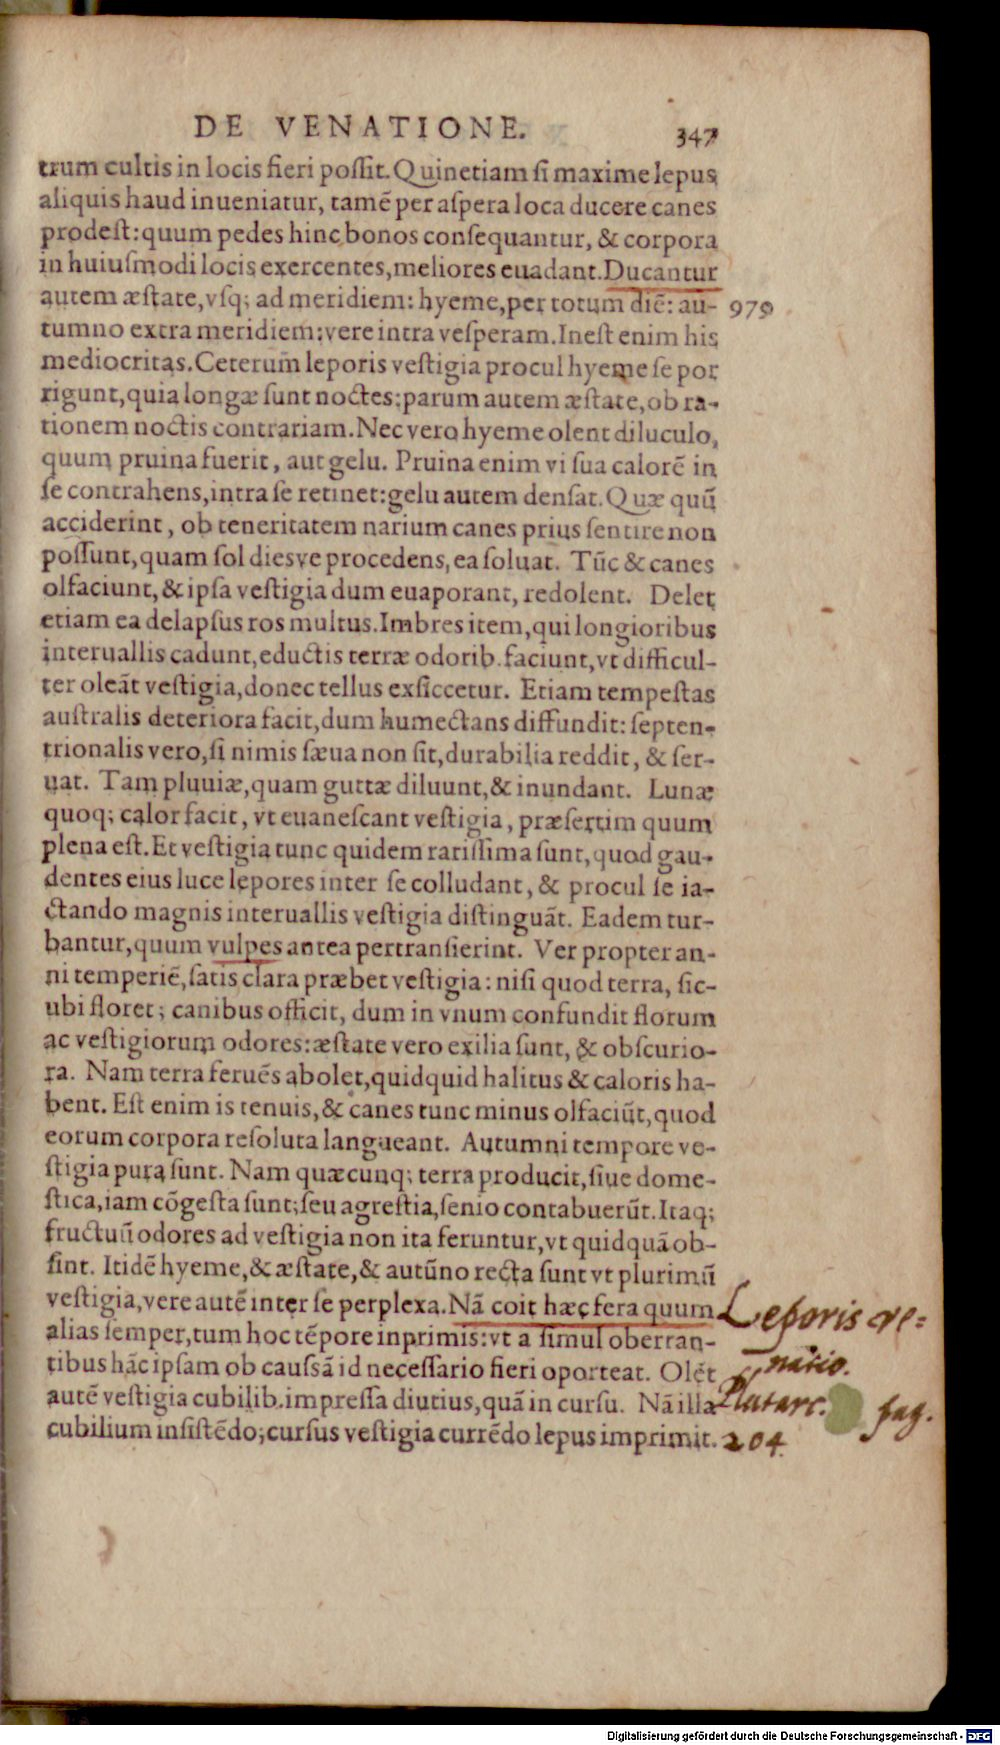 DE VENATIONE. 347
trum cultis in locis fieri poſſit. Quinetiam ſi maxime lepus
aliquis haud inueniatur, tamē per aſpera loca ducere canes
prodeſt: quum pedes hinc bonos conſequantur, & corpora
in huiuſmodi locis exercentes, meliores euadant. Ducantur
autem æſtate, vſq; ad meridiem: hyeme, per totum diē: au- 979
tumno extra meridiem: vere intra veſperam. Ineſt enim his
mediocritas. Ceterum leporis veſtigia procul hyeme ſe por
rigunt, quia longæ ſunt noctes: parum autem æſtate, ob ra-
tionem noctis contrariam. Nec vero hyeme olent diluculo,
quum pruina fuerit, aut gelu. Pruina enim vi ſua calorē in
ſe contrahens, intra ſe retinet: gelu autem denſat. Quæ quū
acciderint, ob teneritatem narium canes prius ſentire non
poſſunt, quam ſol diesve procedens, ea ſoluat. Tūc & canes
olfaciunt, & ipſa veſtigia dum euaporant, redolent. Delet
etiam ea delapſus ros multus. Imbres item, qui longioribus
interuallis cadunt, eductis terræ odorib. faciunt, vt difficul-
ter oleāt veſtigia, donec tellus exſiccetur. Etiam tempeſtas
auſtralis deteriora facit, dum humectans diffundit: ſepten-
trionalis vero, ſi nimis ſæua non ſit, durabilia reddit, & ſer-
uat. Tam pluuiæ, quam guttæ diluunt, & inundant. Lunæ
quoq; calor facit, vt euaneſcant veſtigia, præſertim quum
plena eſt. Et veſtigia tunc quidem rariſſima ſunt, quod gau-
dentes eius luce lepores inter ſe colludant, & procul ſe ia-
ctando magnis interuallis veſtigia diſtinguāt. Eadem tur-
bantur, quum vulpes antea pertranſierint. Ver propter an-
ni temperiē, ſatis clara præbet veſtigia: niſi quod terra, ſic-
ubi floret; canibus officit, dum in vnum confundit florum
ac veſtigiorum odores: æſtate vero exilia ſunt, & obſcurio-
ra. Nam terra feruēs abolet, quidquid halitus & caloris ha-
bent. Eſt enim is tenuis, & canes tunc minus olfaciūt, quod
eorum corpora reſoluta langueant. Autumni tempore ve-
ſtigia pura ſunt. Nam quæcunq; terra producit, ſiue dome-
ſtica, iam cōgeſta ſunt; ſeu agreſtia, ſenio contabuerūt. Itaq;
fructuū odores ad veſtigia non ita feruntur, vt quidquā ob-
ſint. Itidē hyeme, & æſtate, & autūno recta ſunt vt plurimū
veſtigia, vere autē inter ſe perplexa. Nā coit hæc fera quum
alias ſemper, tum hoc tēpore inprimis: vt a ſimul oberran-
tibus hāc ipſam ob cauſſā id neceſſario fieri oporteat. Olēt
autē veſtigia cubilib. impreſſa diutius, quā in curſu. Nā illa
cubilium inſiſtēdo; curſus veſtigia currēdo lepus imprimit.
Leporis ve=
natio.
Plutarc. pag.
204.
Digitalisierung gefördert durch die Deutsche Forschungsgemeinschaft - DFG